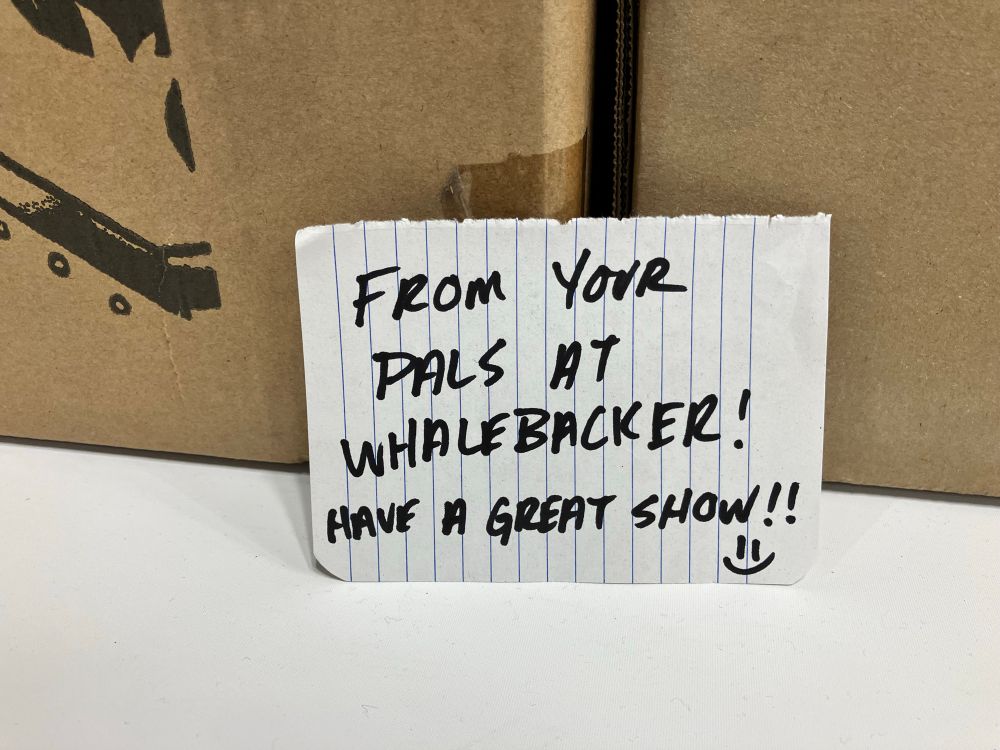 FROM YOUR
PALS AT
WHALEBACKER!
HAVE A GREAT SHOW!!